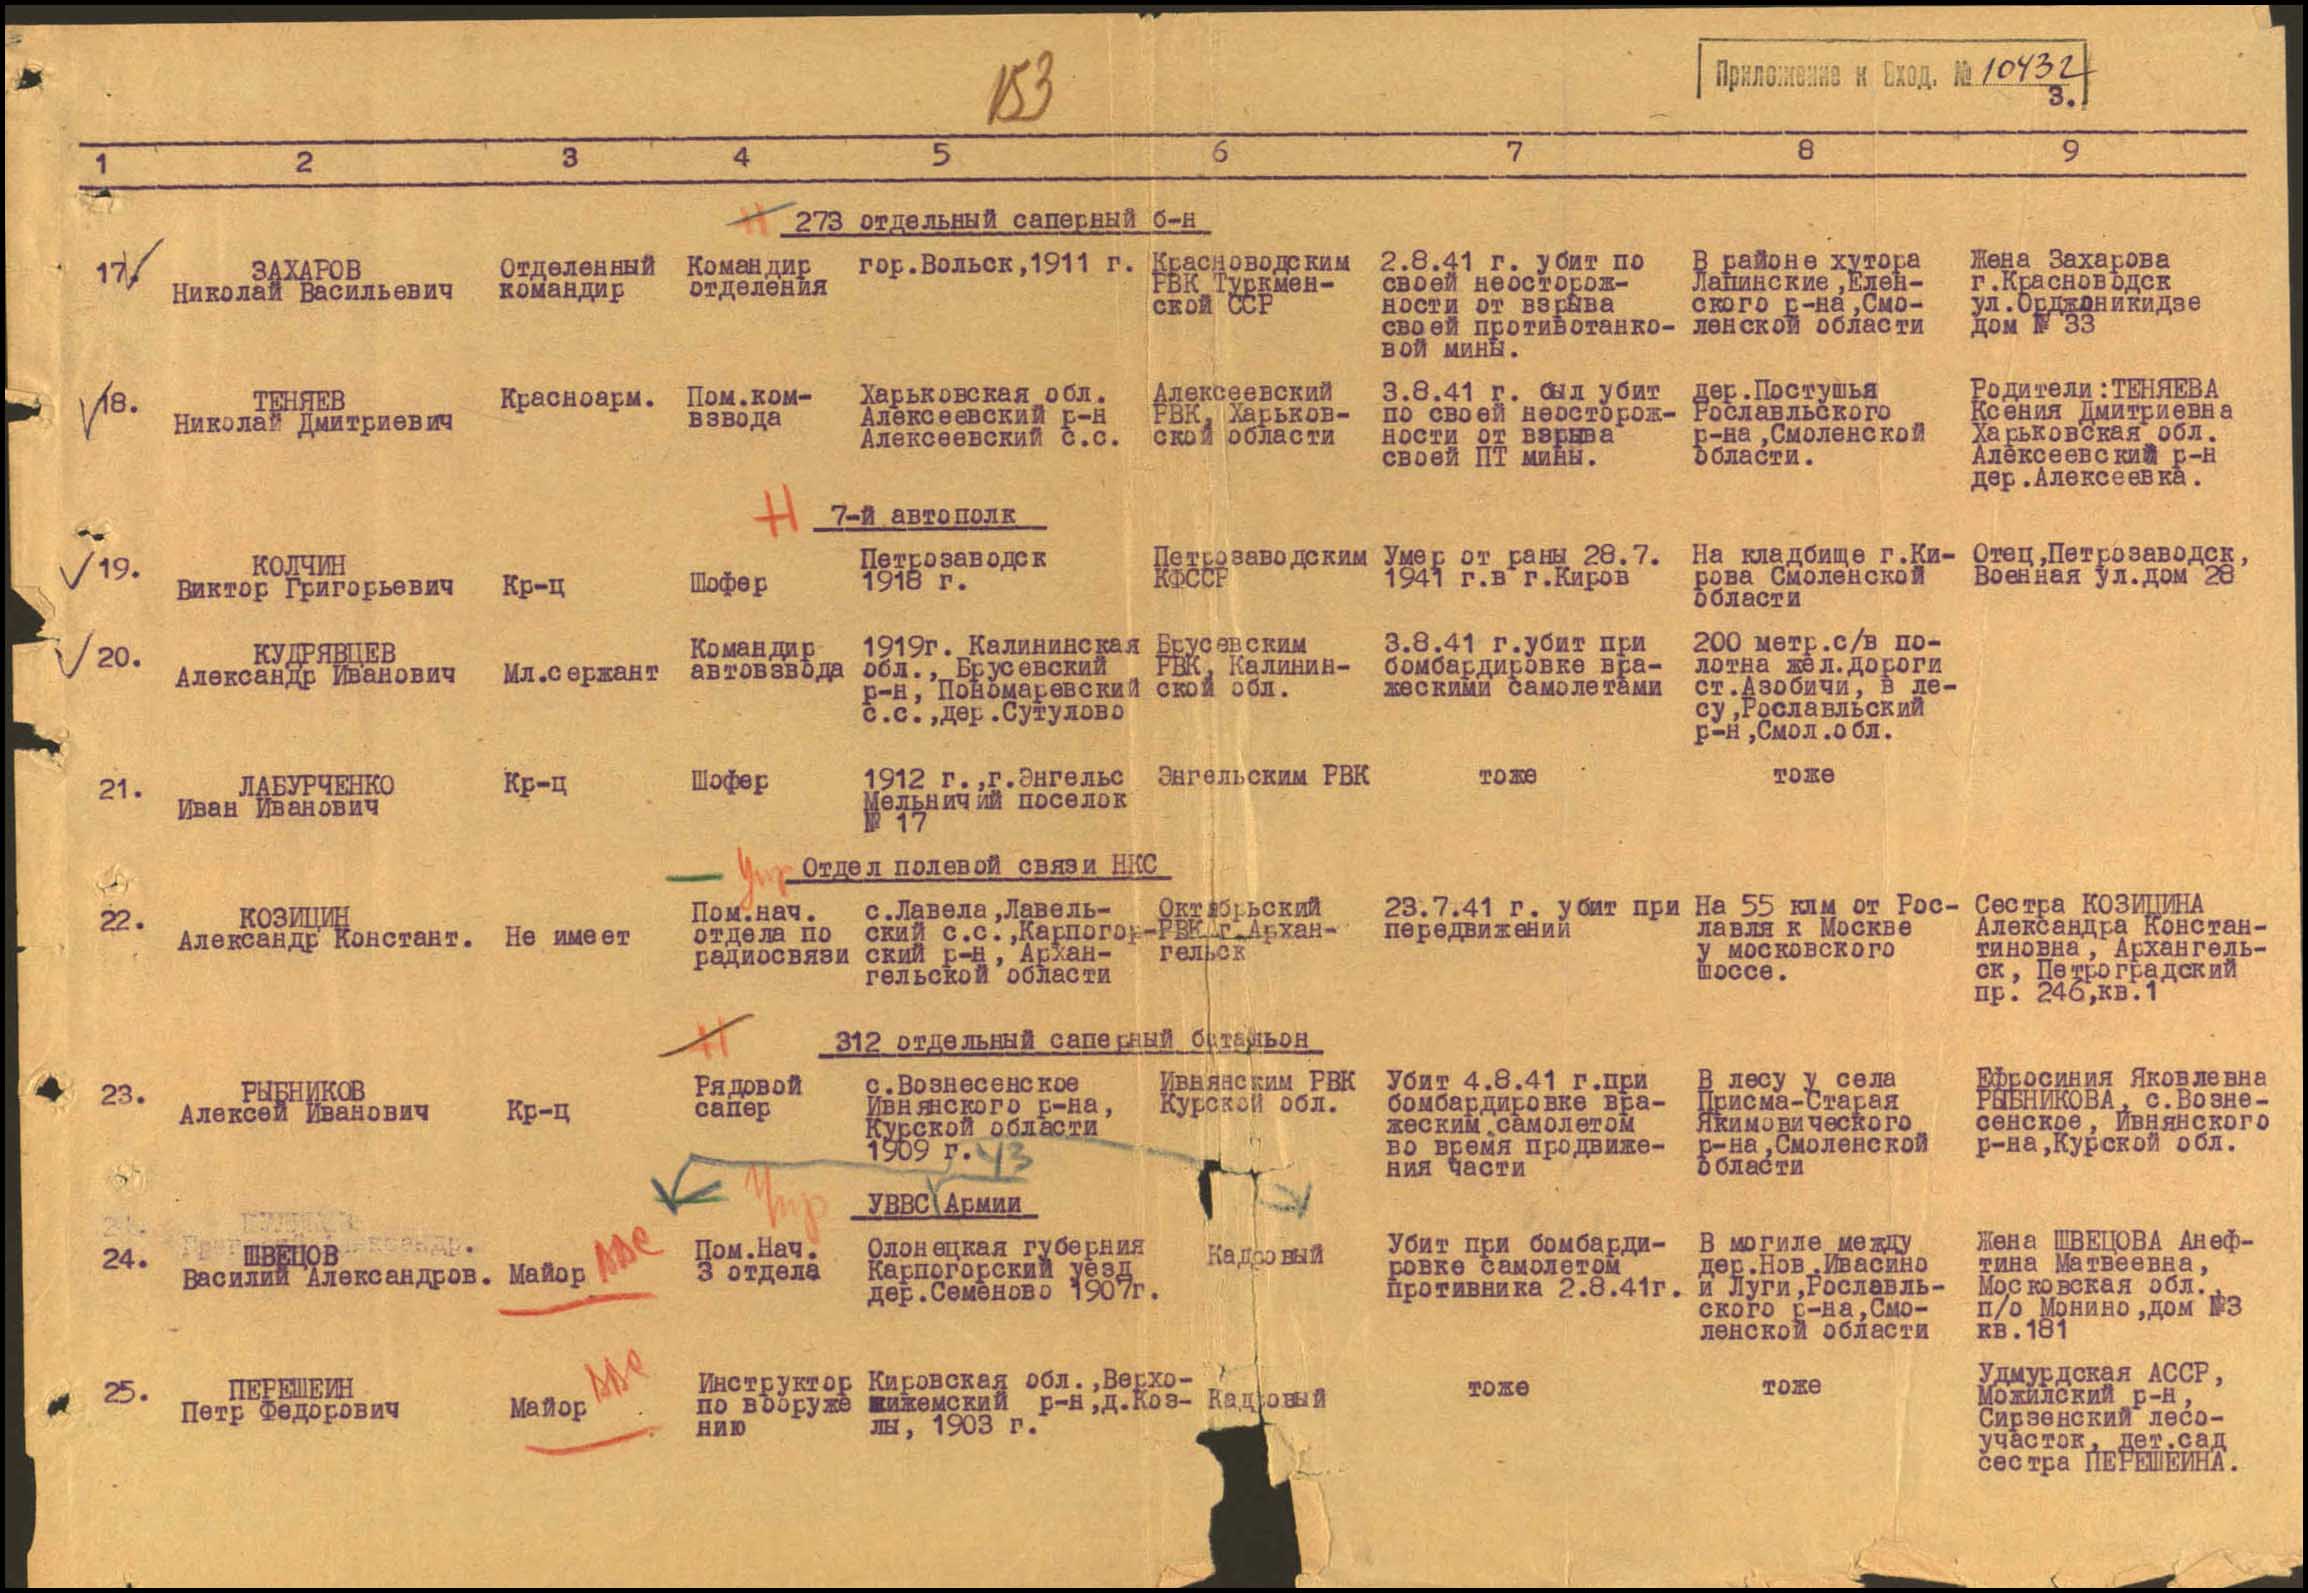 153
Приложение к Вход. № 10432
3.
1 2 3 4 5 6 7 8 9
Н 273 отдельный саперный б-н
17. ЗАХАРОВ
Николай Васильевич
Отделенный
командир
Командир
отделения
гор.Вольск,1911 г.
Красноводским
РВК Туркмен-
ской ССР
2.8.41 г. убит по
своей неосторож-
ности от взрыва
своей противотанко-
вой мины.
В районе хутора
Лапинские,Елен-
ского р-на,Смо-
ленской области
Жена Захарова
г.Красноводск
ул.Орджоникидзе
дом № 33
18. ТЕНЯЕВ
Николай Дмитриевич
Красноарм.
Пом.ком-
взвода
Харьковская обл.
Алексеевский р-н
Алексеевский с.с.
Алексеевский
РВК, Харьков-
ской области
3.8.41 г. был убит
по своей неосторож-
ности от взрыва
своей ПТ мины.
дер.Постушья
Рославльского
р-на,Смоленской
области.
Родители:ТЕНЯЕВА
Ксения Дмитриевна
Харьковская обл.
Алексеевский р-н
дер.Алексеевка.
Н 7-й автополк
19. КОЛЧИН
Виктор Григорьевич
Кр-ц
Шофер
Петрозаводск
1918 г.
Петрозаводским
КФССР
Умер от раны 28.7.
1941 г.в г.Киров
На кладбище г.Ки-
рова Смоленской
области
Отец,Петрозаводск,
Военная ул.дом 28
20. КУДРЯВЦЕВ
Александр Иванович
Мл.сержант
Командир
автовзвода
1919г. Калининская
обл., Брусевский
р-н, Пономаревский
с.с.,дер.Сутулово
Брусевским
РВК, Калинин-
ской обл.
3.8.41 г.убит при
бомбардировке вра-
жескими самолетами
200 метр.с/в по-
лотна жел.дороги
ст.Азобичи, в ле-
су,Рославльский
р-н,Смол.обл.
21. ЛАБУРЧЕНКО
Иван Иванович
Кр-ц
Шофер
1912 г.,г.Энгельс
Мельничий поселок
№ 17
Энгельским РВК
тоже
тоже
Упр Отдел полевой связи НКС
22. КОЗИЦИН
Александр Констант.
Не имеет
Пом.нач.
отдела по
радиосвязи
с.Лавела,Лавель-
ский с.с.,Карпогор-
ский р-н, Архан-
гельской области
Октябрьский
РВК г.Архан-
гельск
23.7.41 г. убит при
передвижении
На 55 клм от Рос-
лавля к Москве
у московского
шоссе.
Сестра КОЗИЦИНА
Александра Констан-
тиновна, Архангель-
ск, Петроградский
пр. 246,кв.1
Н 312 отдельный саперный батальон
23. РЫБНИКОВ
Алексей Иванович
Кр-ц
Рядовой
сапер
с.Вознесенское
Ивнянского р-на,
Курской области
1909 г.
Ивнянским РВК
Курской обл.
Убит 4.8.41 г.при
бомбардировке вра-
жеским самолетом
во время продвиже-
ния части
В лесу у села
Присма-Старая
Якимовического
р-на,Смоленской
области
Ефросиния Яковлевна
РЫБНИКОВА, с.Возне-
сенское, Ивнянского
р-на,Курской обл.
43
Упр УВВС Армии
24. ШВЕЦОВ
Василий Александров.
Майор ВВС
Пом.Нач.
3 отдела
Олонецкая губерния
Карпогорский уезд
дер.Семеново 1907г.
Кадровый
Убит при бомбарди-
ровке самолетом
противника 2.8.41г.
В могиле между
дер.Нов.Ивасино
и Луги,Рославль-
ского р-на,Смо-
ленской области
Жена ШВЕЦОВА Анеф-
тина Матвеевна,
Московская обл.,
п/о Монино,дом №3
кв.181
25. ПЕРЕШЕИН
Петр Федорович
Майор ВВС
Инструктор
по вооруже
нию
Кировская обл.,Верхо-
шижемский р-н,д.Коз-
лы, 1903 г.
Кадровый
тоже
тоже
Удмурдская АССР,
Можилский р-н,
Сирзенский лесо-
участок, дет.сад
сестра ПЕРЕШЕИНА.